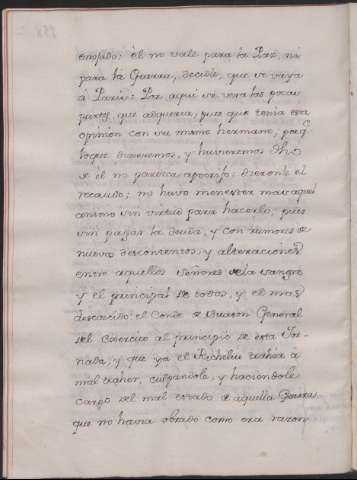 enojado: él no vale para la Paz, ni
para la Guerra, decidle, que se vaya
á Paris: Por aqui se vera las
partes que adquiria, pues que tenia esta
opinion con su mismo hermano, por
lo que diremos, y huvieremos dho
si él no pareciera apocrifo: dieronle el
recaudo; no huvo menester mas aquel
animo sin virtud para hacerlo, pues
sin pagar la deuda, y con rumores de
nuevos descontentos, y alteraciones
entre aquellos Señores de la sangre
y el principal de todos, y el mas
descaecido el Conde de Suason General
del Exercito al principio de esta Jor-
nada, y que ya el Richelieu traher a
mal traher, culpandole, y haciendole
cargo del mal estado de aquella Guerra
que no havia obrado como era razon